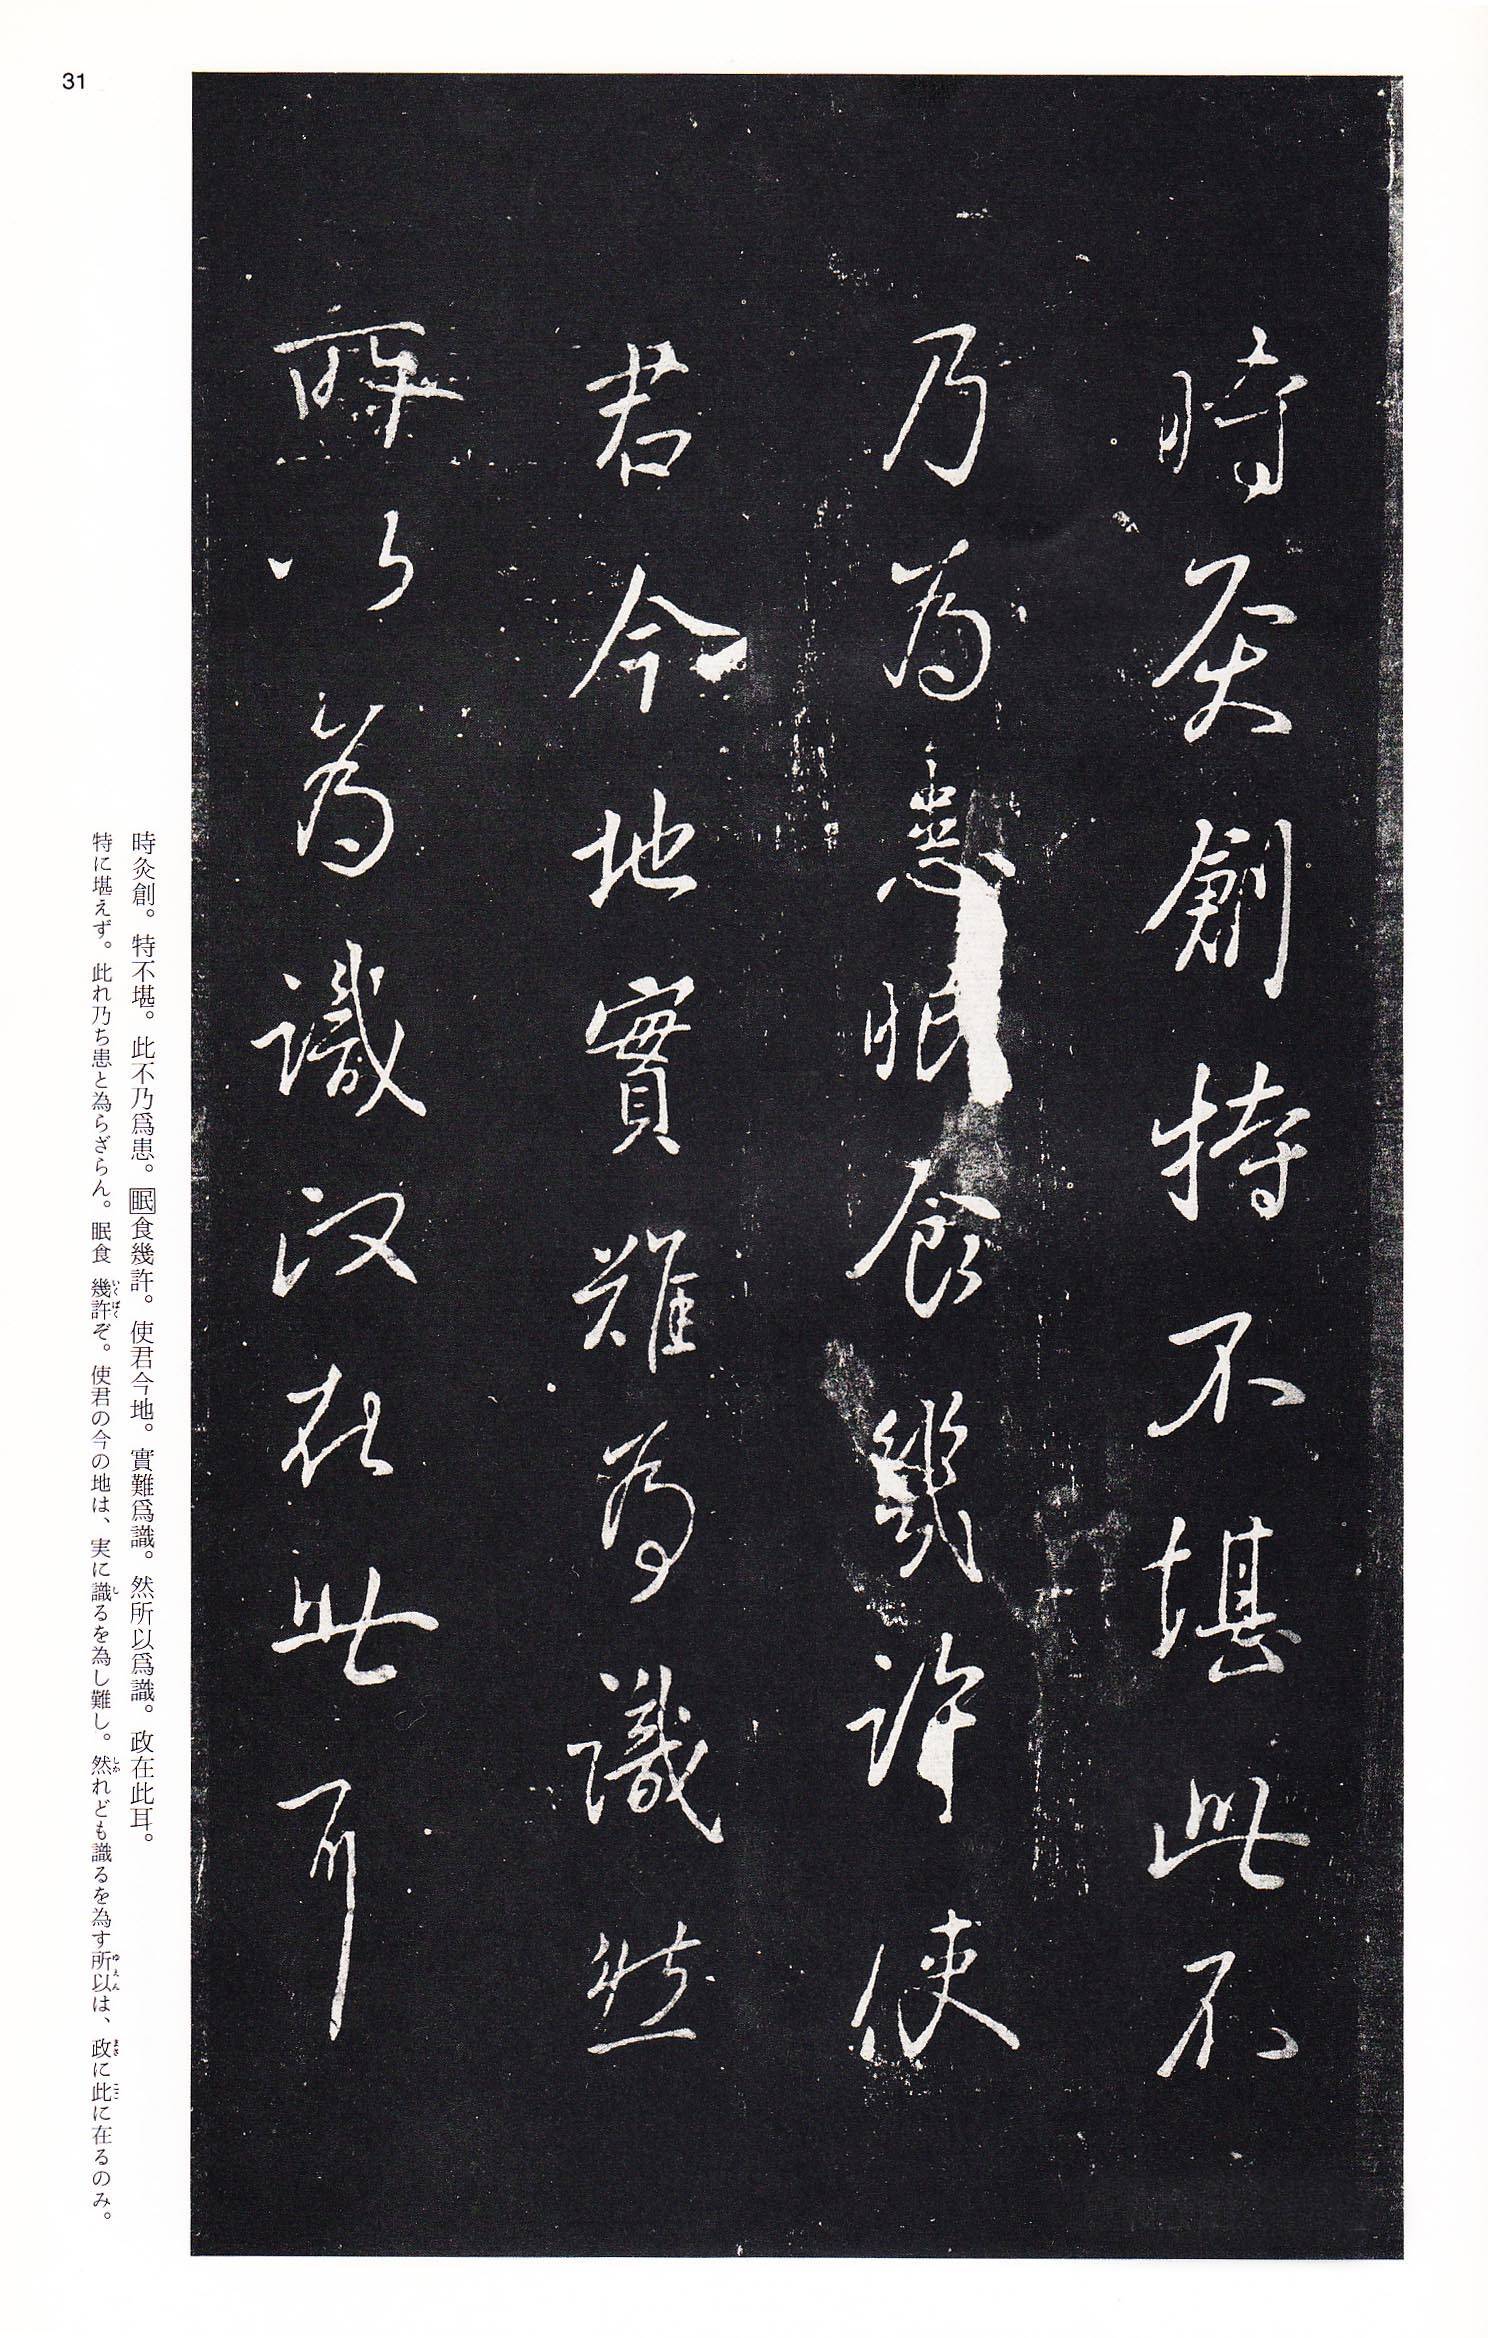 31
時灸創特不堪此不
乃為患眠食幾許使
君今地實難為識然
所以為識政在此耳
時灸創。特不堪。此不乃爲患。眠食幾許。使君今地。實難爲識。然所以爲識。政在此耳。
特に堪えず。此れ乃ち患と為らざらん。眠食 幾許ぞ。使君の今の地は、実に識るを為し難し。然れども識るを為す所以は、政に此に在るのみ。
いくばく し しか ゆえん まさ ここ